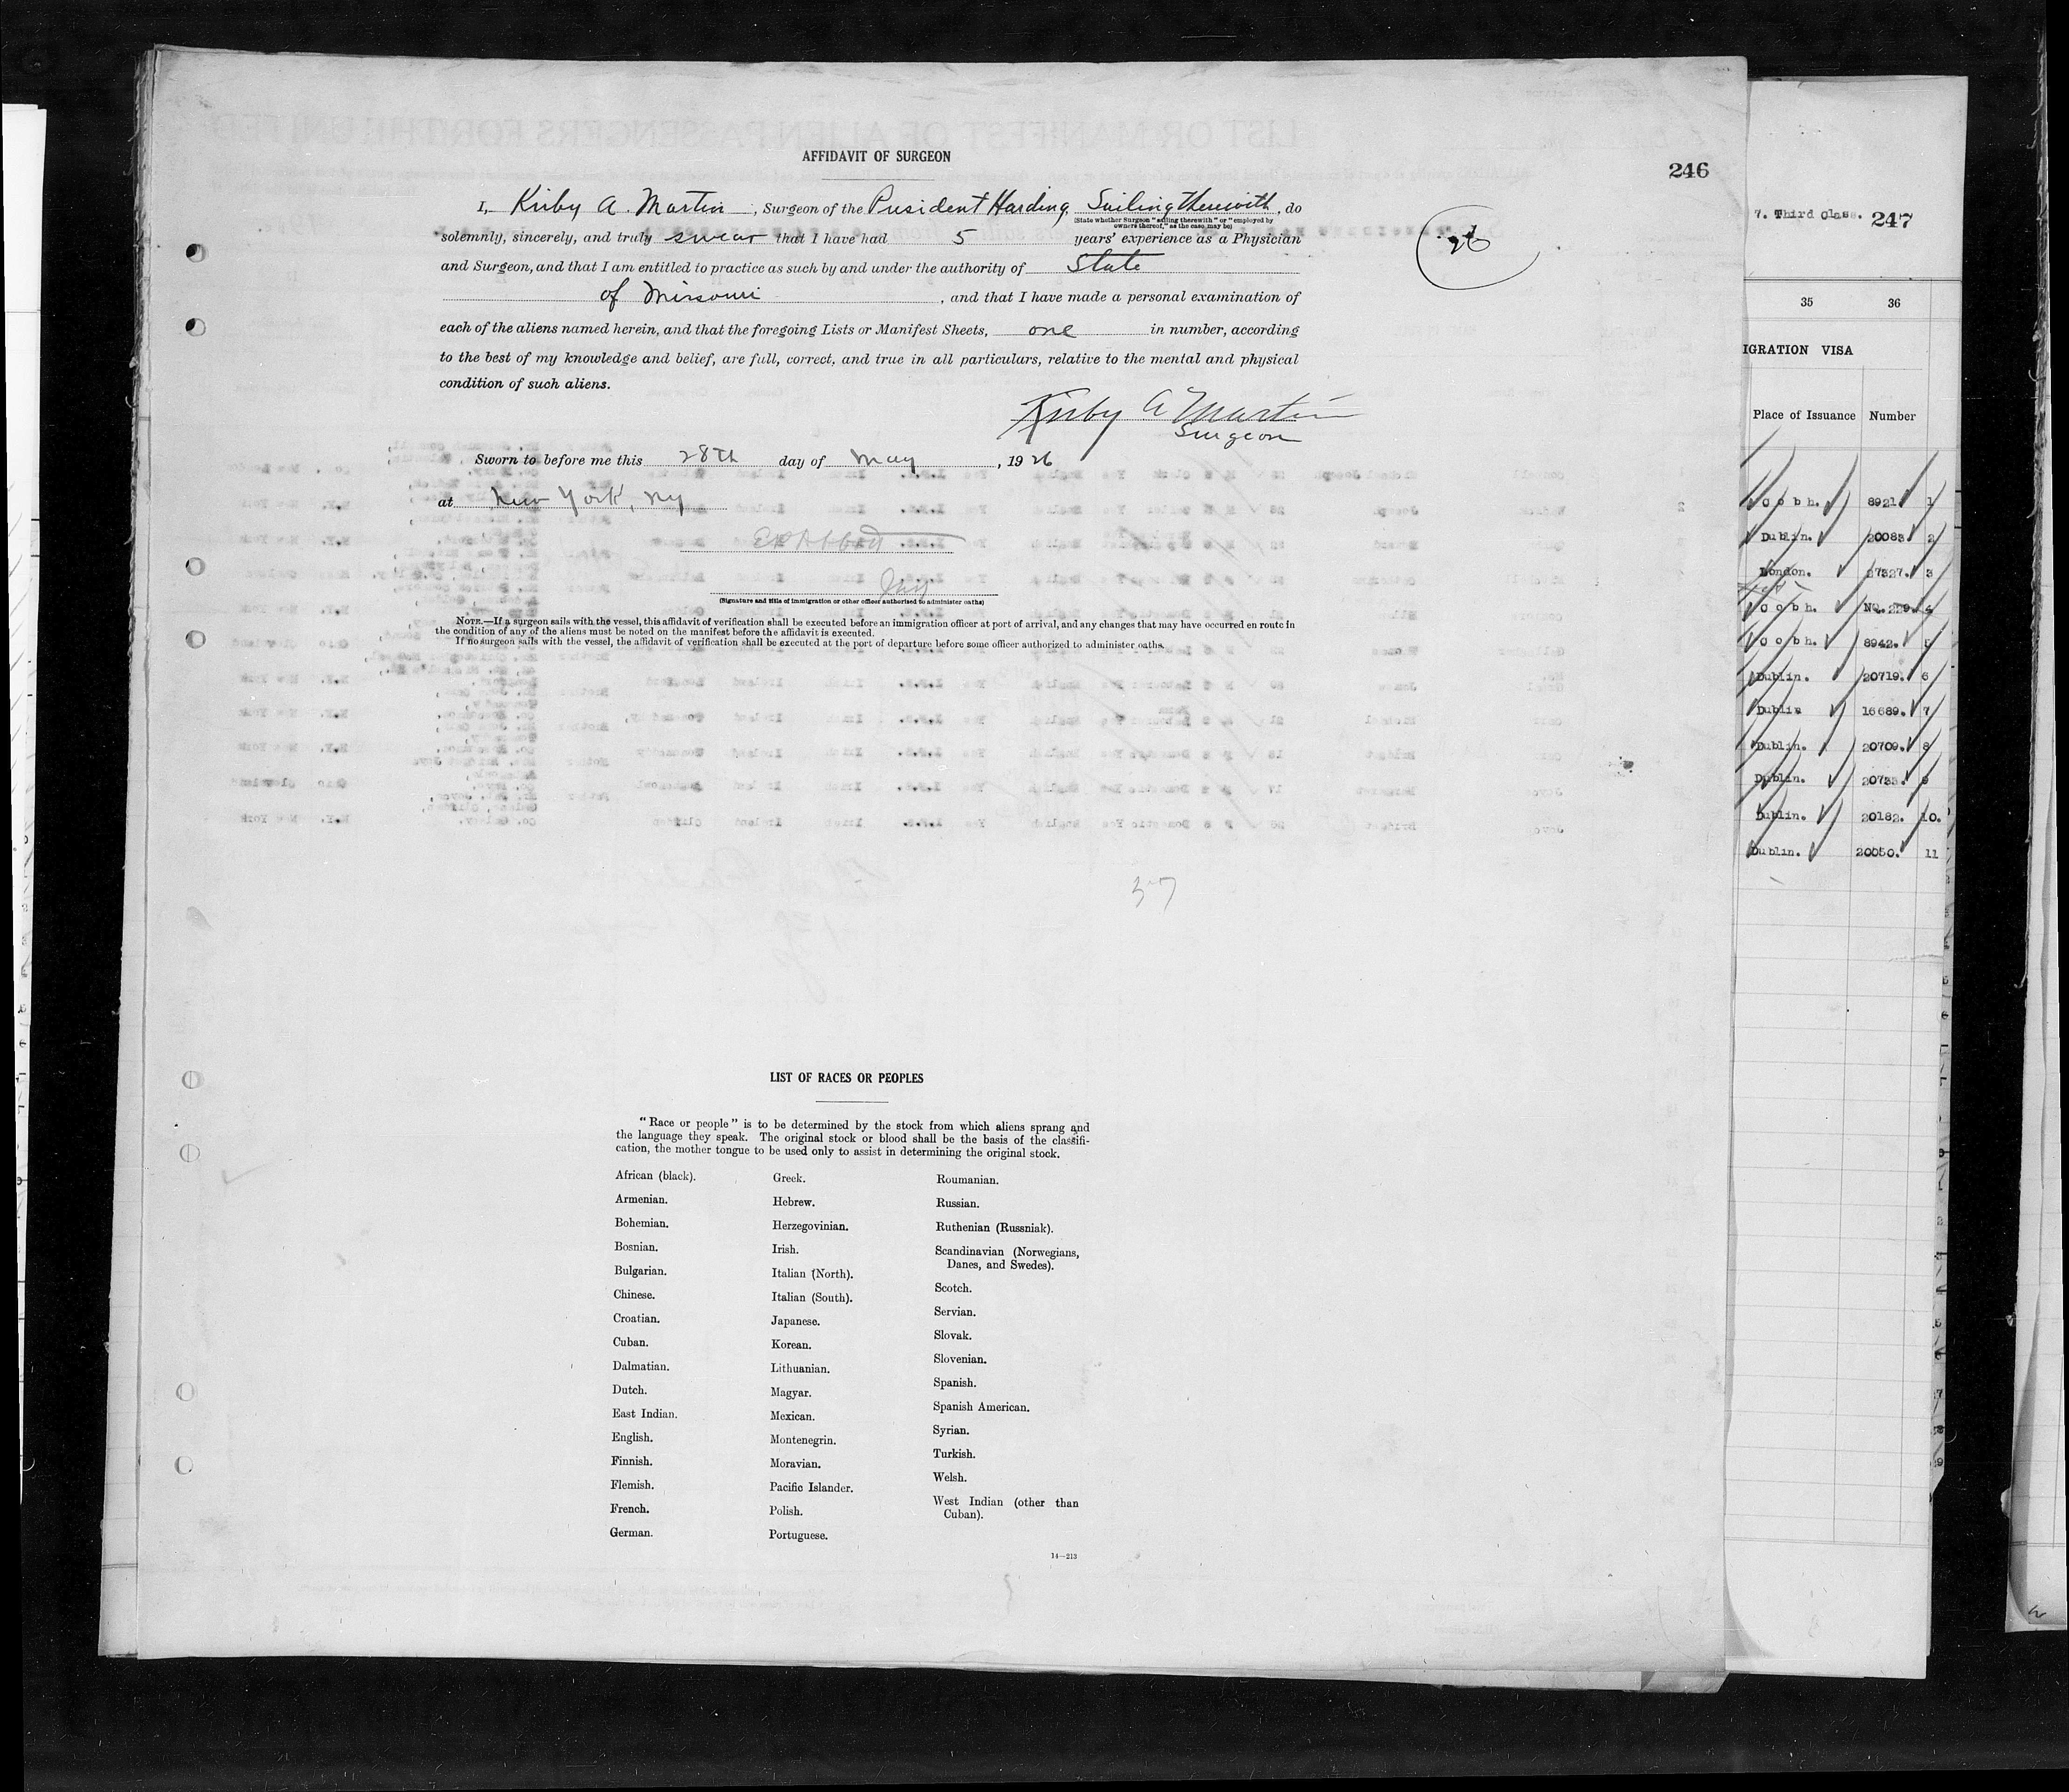 AFFIDAVIT OF SURGEON
246
I, Kirby A. Martin, Surgeon of the President Harding, Sailing therewith, do
(State whether Surgeon "sailing therewith" or "employed by
owners thereof," as the case may be)
solemnly, sincerely, and truly swear that I have had 5 years' experience as a Physician
and Surgeon, and that I am entitled to practice as such by and under the authority of State
of Missouri, and that I have made a personal examination of
each of the aliens named herein, and that the foregoing Lists or Manifest Sheets, one in number, according
to the best of my knowledge and belief, are full, correct, and true in all particulars, relative to the mental and physical
condition of such aliens.
Kirby A Martin
Surgeon
Sworn to before me this 28th day of May, 1926
at New York, NY
(Signature and title of immigration or other officer authorized to administer oaths)
NOTE.—If a surgeon sails with the vessel, this affidavit of verification shall be executed before an immigration officer at port of arrival, and any changes that may have occurred en route in
the condition of any of the aliens must be noted on the manifest before the affidavit is executed.
If no surgeon sails with the vessel, the affidavit of verification shall be executed at the port of departure before some officer authorized to administer oaths.
37
LIST OF RACES OR PEOPLES
"Race or people" is to be determined by the stock from which aliens sprang and
the language they speak. The original stock or blood shall be the basis of the classifi-
cation, the mother tongue to be used only to assist in determining the original stock.
African (black).
Armenian.
Bohemian.
Bosnian.
Bulgarian.
Chinese.
Croatian.
Cuban.
Dalmatian.
Dutch.
East Indian.
English.
Finnish.
Flemish.
French.
German.
Greek.
Hebrew.
Herzegovinian.
Irish.
Italian (North).
Italian (South).
Japanese.
Korean.
Lithuanian.
Magyar.
Mexican.
Montenegrin.
Moravian.
Pacific Islander.
Polish.
Portuguese.
Roumanian.
Russian.
Ruthenian (Russniak).
Scandinavian (Norwegians,
Danes, and Swedes).
Scotch.
Servian.
Slovak.
Slovenian.
Spanish.
Spanish American.
Syrian.
Turkish.
Welsh.
West Indian (other than
Cuban).
14—213
7. Third Class. 247
35 36
IGRATION VISA
Place of Issuance Number
Cobh. 8921 1
Dublin. 20083 2
London. 27327. 3
Cobh. NQ. 229. 4
Cobh. 8942. 5
Dublin. 20719. 6
Dublin 16689. 7
Dublin. 20709. 8
Dublin. 20735. 9
Dublin. 20182. 10.
Dublin. 20050. 11